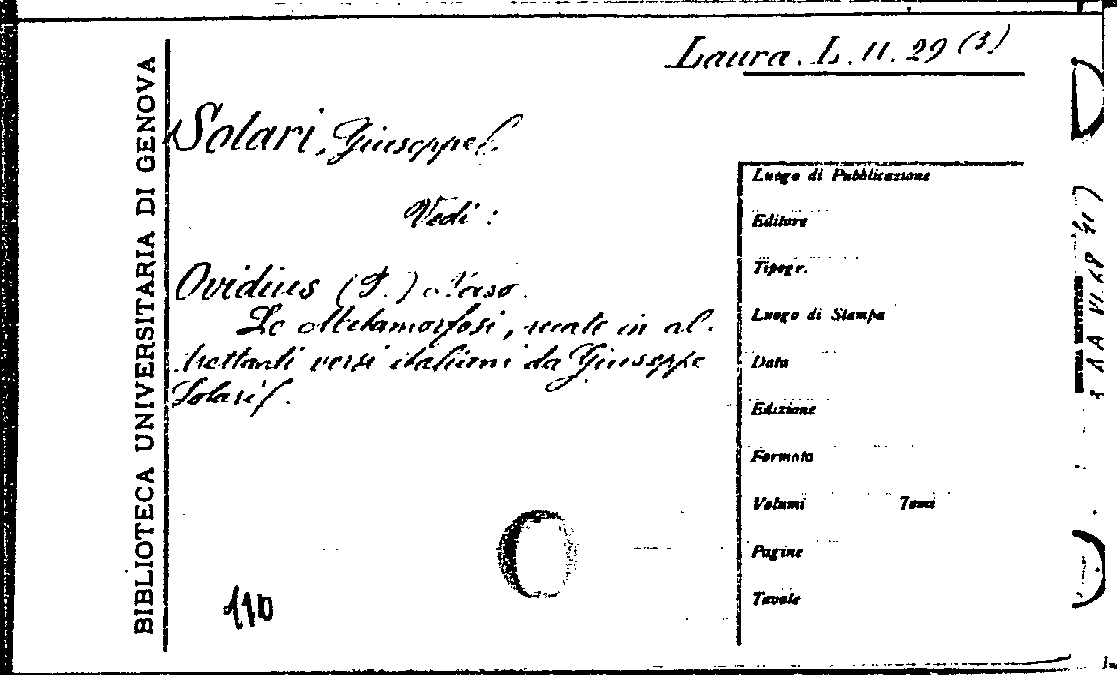 Laura. L. 11. 29 (3)
BIBLIOTECA UNIVERSITARIA DI GENOVA
Solari, Giuseppe
Vedi :
Ovidius (P.) Naso.
Le Metamorfosi, recate in al-
trettanti versi italiani da Giuseppe
Solari.
110
Luogo di Pubblicazione
Editore
Tipogr.
Luogo di Stampa
Data
Edizione
Formato
Volumi Tomi
Pagine
Tavole